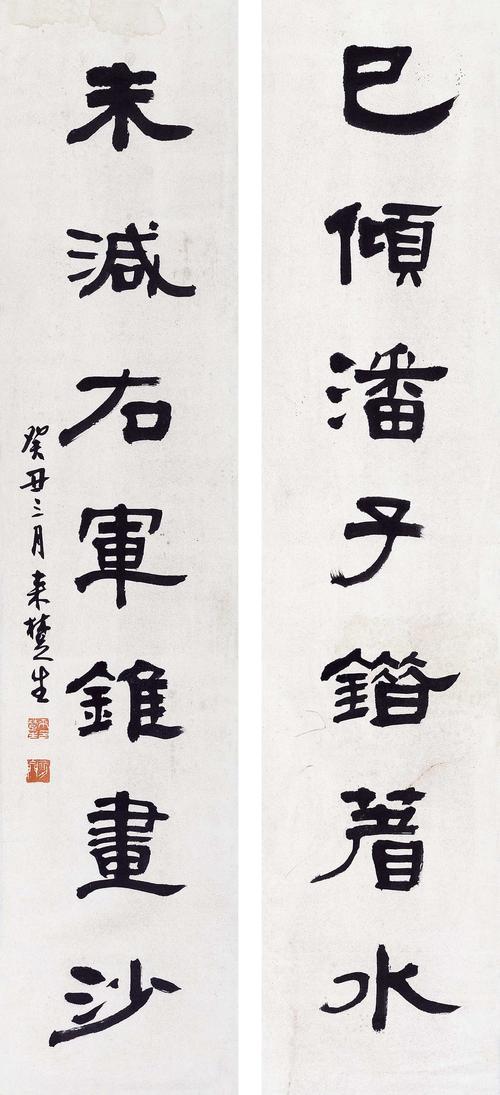 已傾潘子錯著水
未減右軍錐畫沙
癸丑三月來楚生